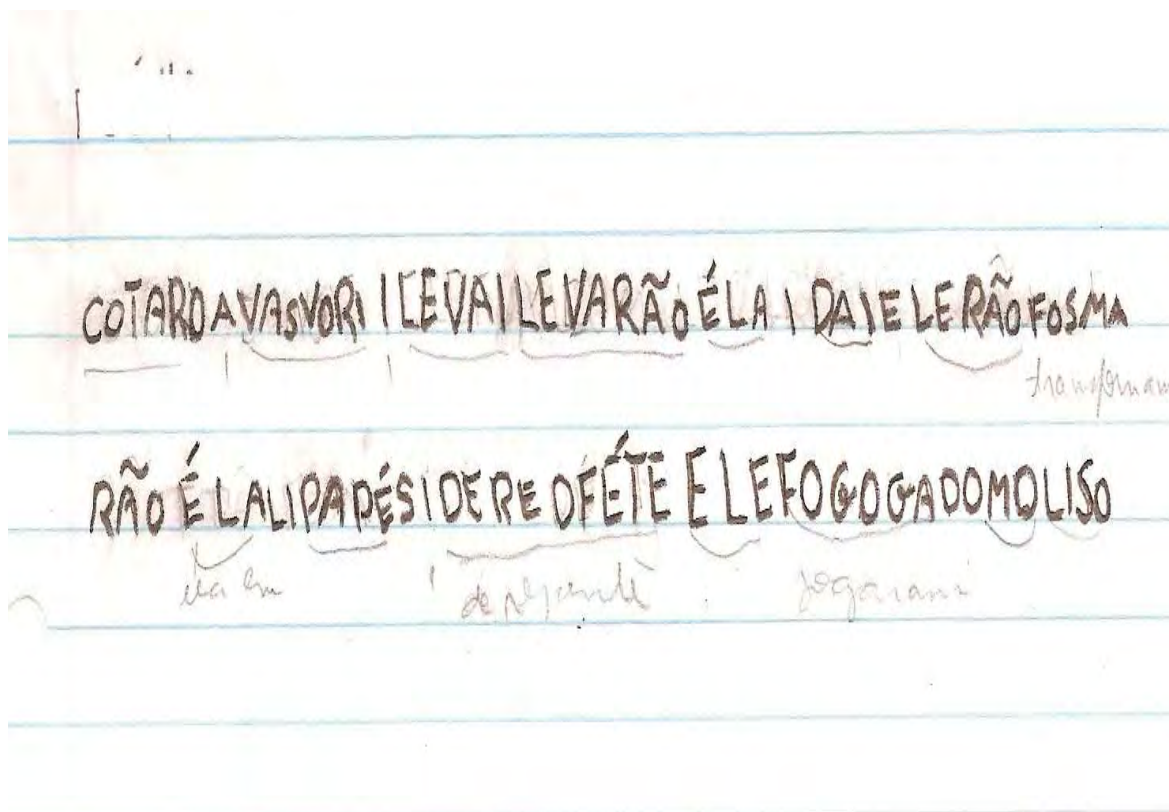 COTARO A VASVORI I LEVAI LEVARÃO É LA I DAI E LE RÃO FOSMA
transformam
RÃO É LALIPAPÉS I DERE OFÉTE E LE FOGOGADOMOLISO
ela em de repente jogaram